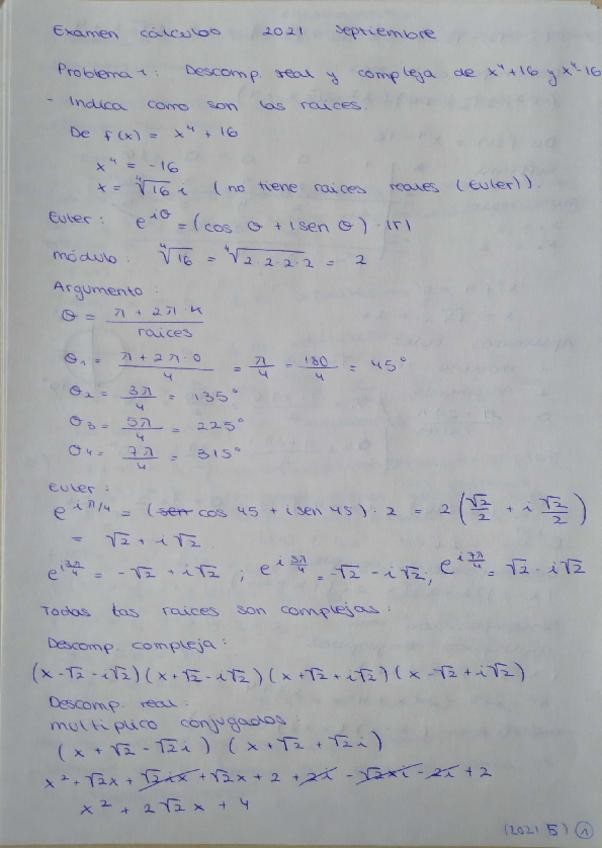 Examen cálculo 2021 septiembre
Problema 1: Descomp. real y compleja de x⁴+16 y x⁴-16
- Indica como son las raíces.
De f(x) = x⁴ + 16
x⁴ = -16
x = ⁴√16 i (no tiene raíces reales (Euler)).
Euler: e^{iθ} = (cos θ + i sen θ) · |r|
módulo: ⁴√16 = ⁴√2·2·2·2 = 2
Argumento:
θ = (π + 2π·k)/raíces
θ₁ = (π + 2π·0)/4 = π/4 = 180/4 = 45°
θ₂ = 3π/4 = 135°
θ₃ = 5π/4 = 225°
θ₄ = 7π/4 = 315°
Euler:
e^{iπ/4} = (sen cos 45 + i sen 45) · 2 = 2(√2/2 + i √2/2)
= √2 + i√2
e^{i3π/4} = -√2 + i√2 ; e^{i5π/4} = -√2 - i√2; e^{i7π/4} = √2 - i√2
Todas las raices son complejas.
Descomp. compleja:
(x-√2-i√2)(x+√2-i√2)(x+√2+i√2)(x-√2+i√2)
Descomp. real:
multiplico conjugados:
(x + √2 - √2i) (x + √2 + √2i)
x² + √2x + √2ix + √2x + 2 + 2i - √2xi - 2i + 2
x² + 2√2x + 4
(2021 5) 1